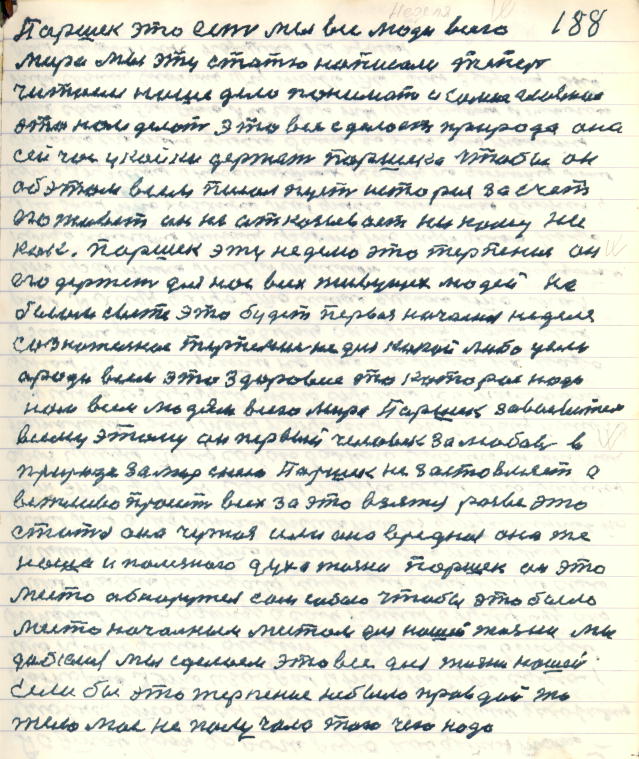 Неделя
188
Паршек это есть мы все люди всего
мира мы эту статью написали теперь
читаем наше дело понимать и самае главнае
это нам делат это все сделает природа она
сейчас у койки держат Паршека чтобы он
об этом всем писал пуст история за счет
его живет он не отказывает никому ни
как. Паршек эту неделю это терпение он
его держит для нас всех живущих людей на
белом свете это будет первая началная неделя
сознателное терпение не для какой либо цели
ароди всем это здоровие это которае надо
нам всем людям всего мира Паршек
всему этому он первый человек за любов в
природе за мир сам Паршек не заставляет а
вежливо просит всех за это взятся разве это
статя она чужая или она вредная она же
наша и полезного духа жизни Паршек он это
место обнаружил сам собою чтобы это было
место началным местом для нашей жизни мы
мы сделаем это все для жизни нашей
Если бы это терпение небыло правдой то
тело мое не получало того чего надо